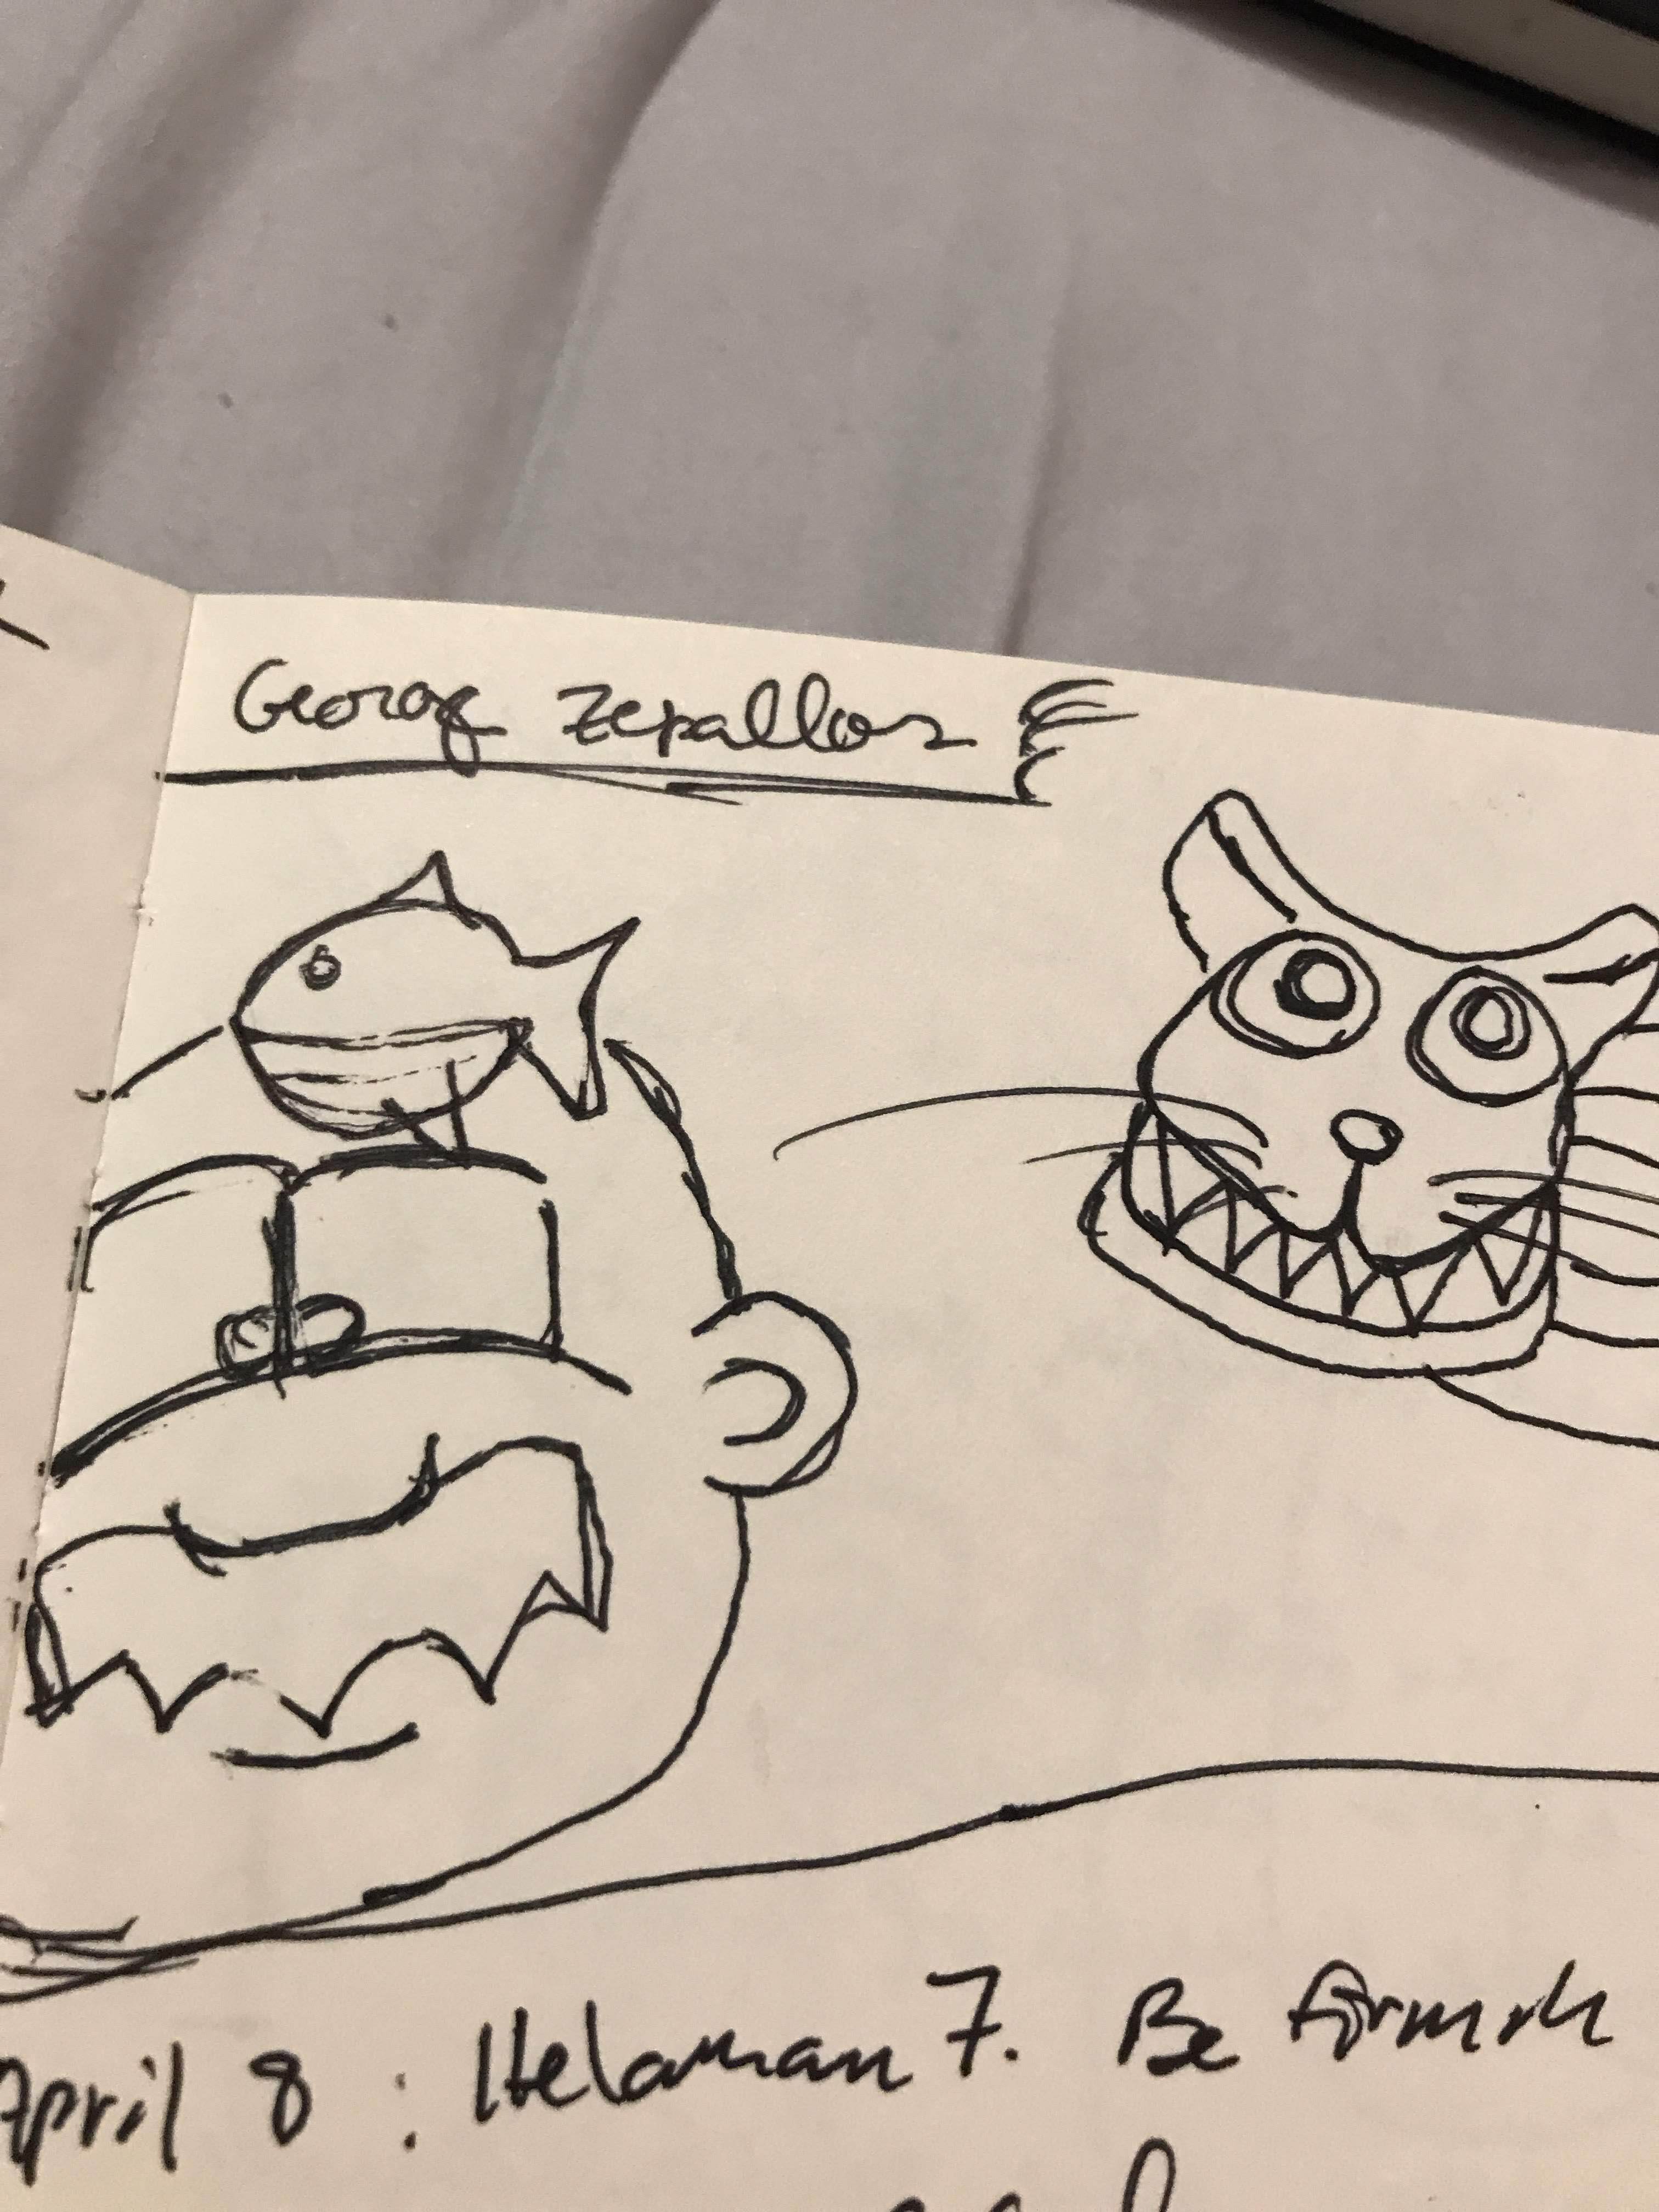 Georg Zepallos
April 8 : Helaman 7. Be